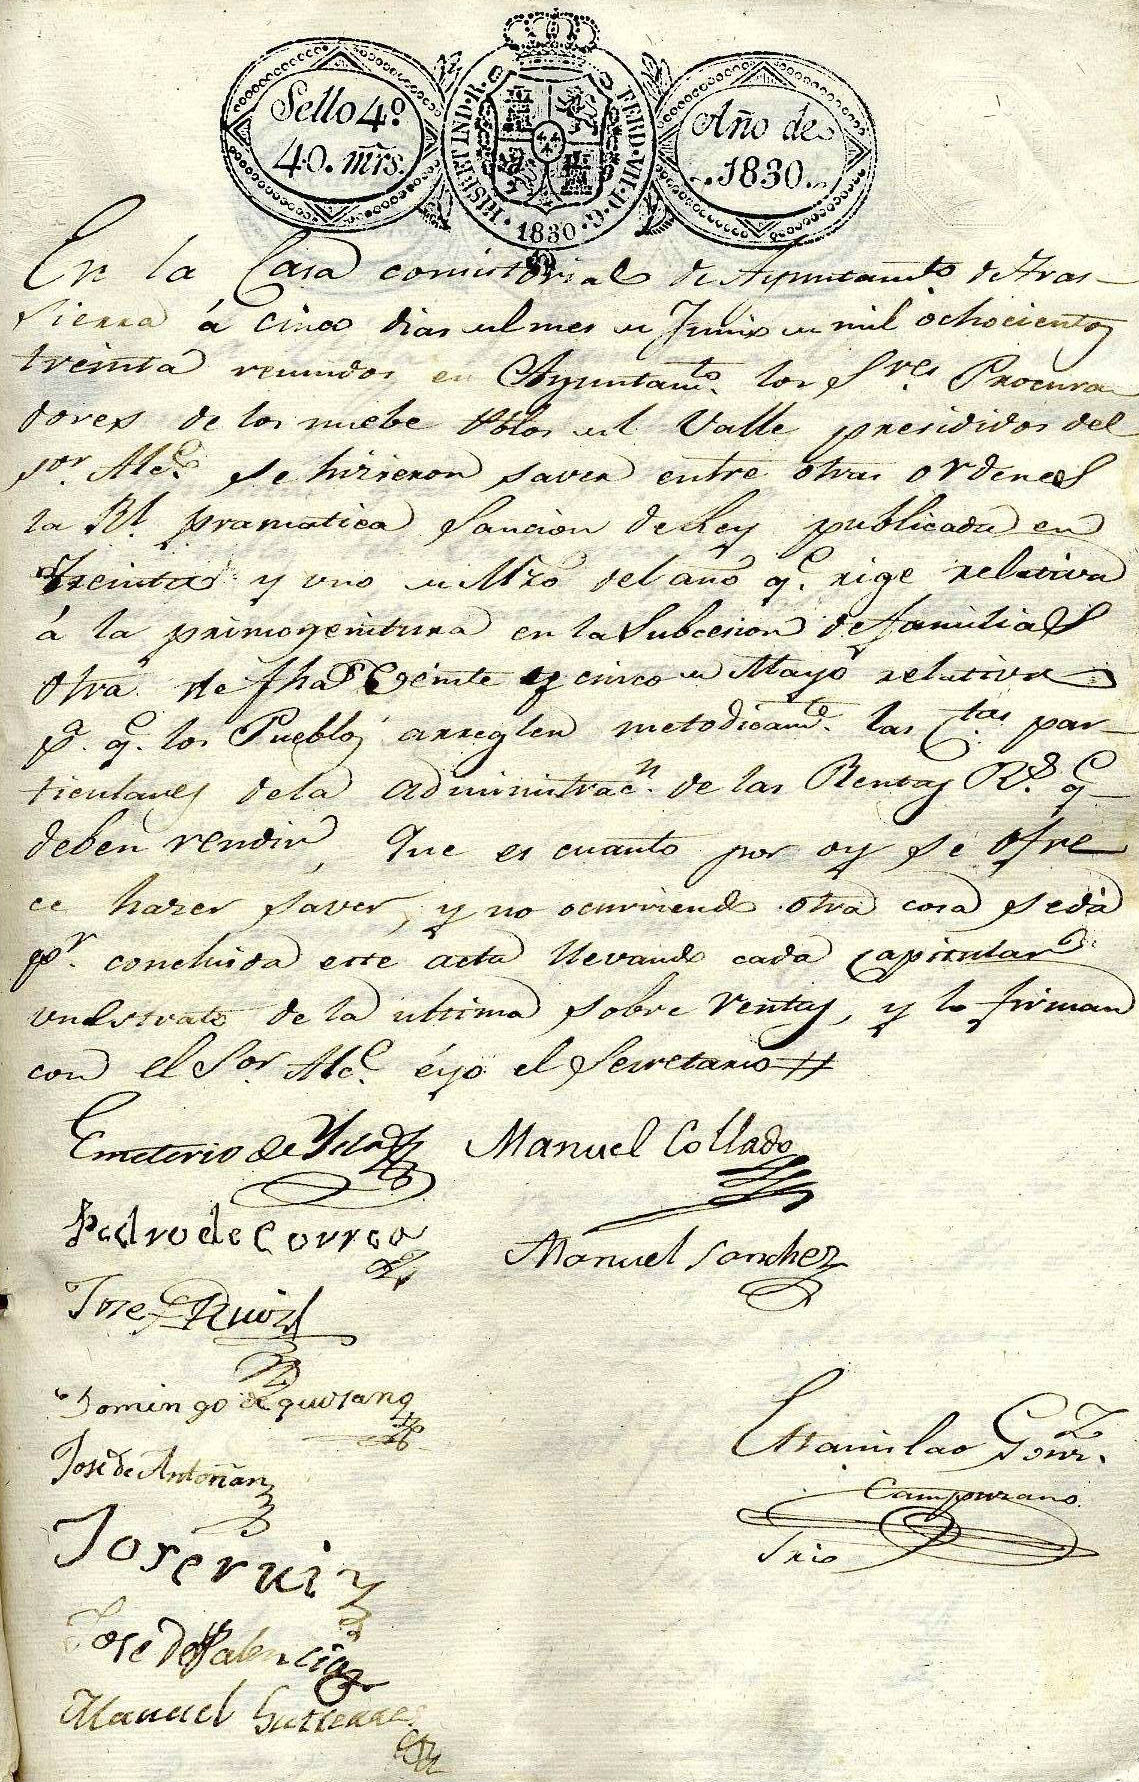 Sello 4º
40. mrs.
HISP. ET IND. R. FERD. VII. D. G.
1830
Año de
1830.
En la Casa consistorial de Ayuntamto. de Tras-
sierra á cinco dias del mes de Junio de mil ochocientos
treinta reunidos en Ayuntamto. los Sres. Procura
dores de los nuebe Pblos del Valle presididos del
Sor. Alce. se hizieron saver entre otras ordenes
la Rl. pramatica sancion de Ley publicada en
treinta y uno de Mzo del año qe. rige relativa
á la primogenitura en la Subcesion de familias
otra de fha Veinte y cinco de Mayo relativa
pa. qe. los Pueblos arreglen metodicamte. las Ctas. par-
ticulares dela administracn. de las Rentas Rs. qe
deben rendir, Que es cuanto por oy se ofre
ce hazer saver, y no ocurriendo otra cosa se dá
pr. concluida este acta llevando cada Capitular
un Estrato de la ultima sobre rentas, y lo firman
con el Sor. Alce. é yo el Secretario #
Emeterio de Ysla Manuel Collado
Pedro de Correa
Manuel Sanchez
Jose Ruiz
Domingo de quijano
Estanislao Gonz.
Jose de Antoñan
Campuzano
Jose ruiz
Srio
Jose de Palencia
Manuel Gutierrez